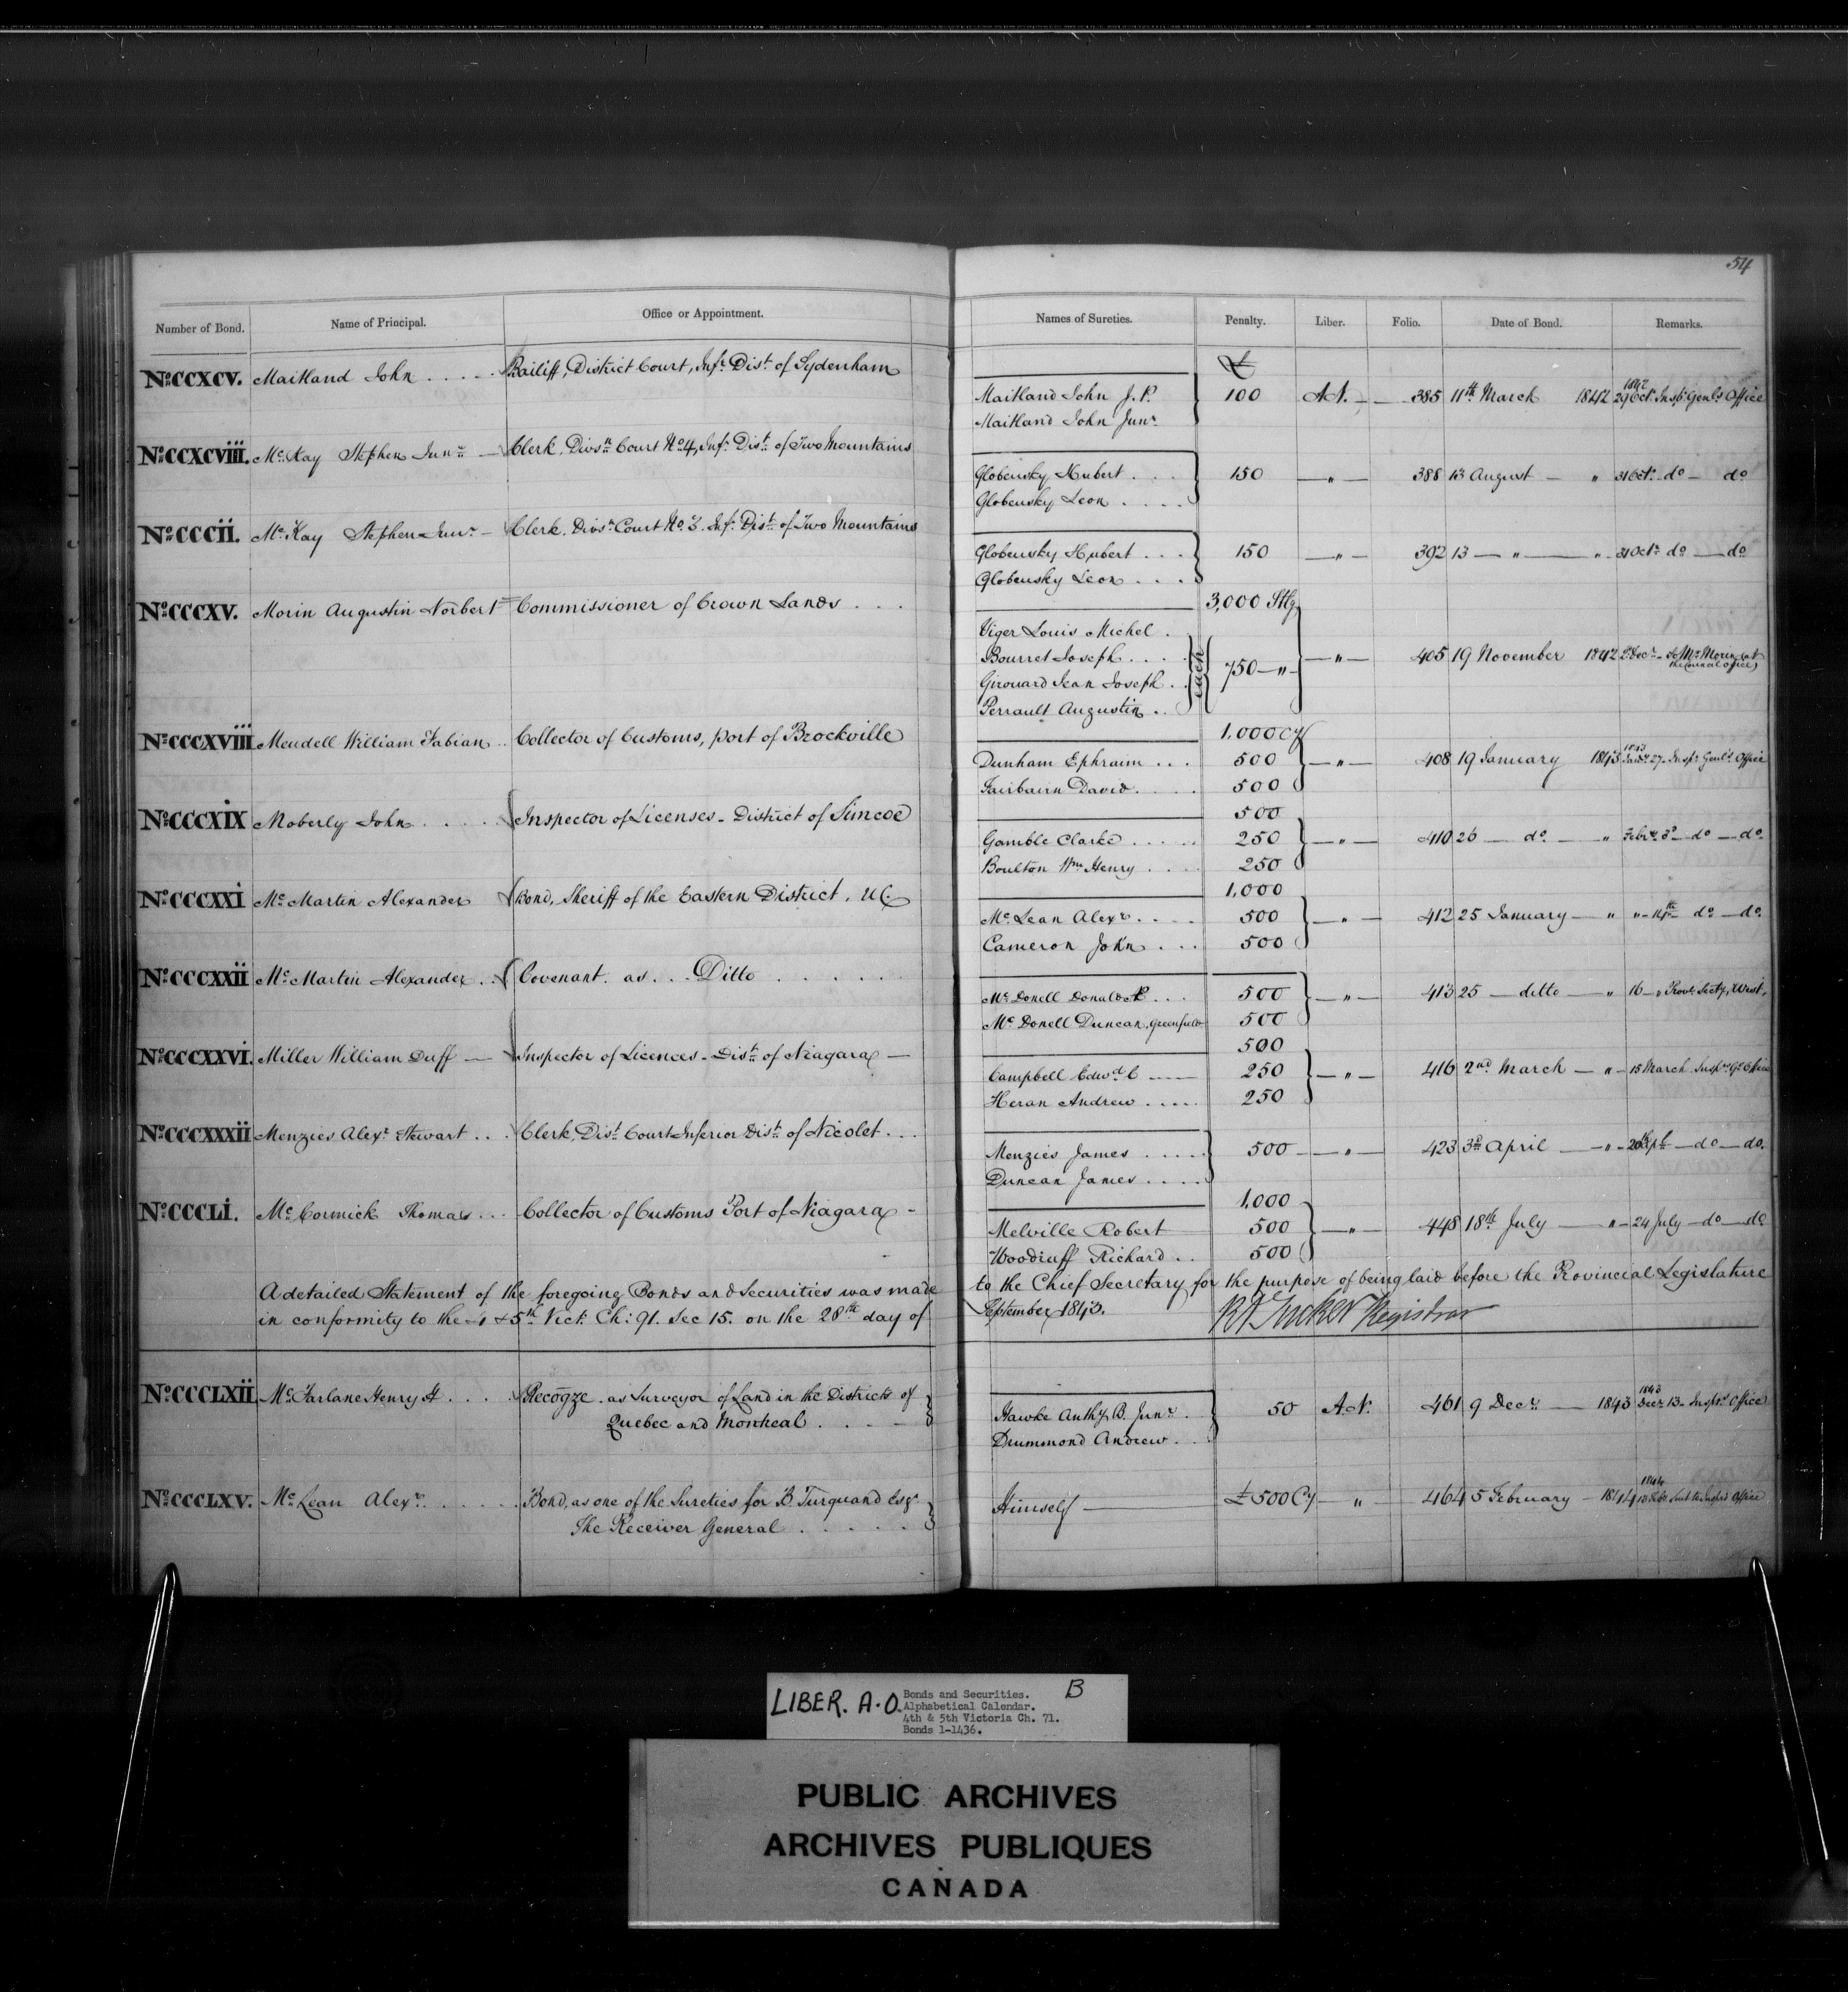 54
Number of Bond. Name of Principal. Office or Appointment. Names of Sureties. Penalty. Liber. Folio. Date of Bond. Remarks.
£
No. CCXCV. Maitland John . . . . . Bailiff, District Court, Infr. Dist. of Sydenham
1842
Maitland John J.P. } 100 A.N. — 385 11th March 1842 29 Octr. Inspr. Genl's Office
Maitland John Junr.
No. CCXCViii. McKay Stephen Junr. — Clerk, Divsn. Court No. 4, Infr. Dist. of Two Mountains
Globensky Hubert . . . } 150 — " — 388 13 August — " 31 Octr. do — do
Globensky Leon . . . .
No. CCCii. McKay Stephen Junr. — Clerk. Divsn. Court No. 3. Infr. Dist. of Two Mountains
Globensky Hubert . . . } 150 — " — 392 13 — " — " 31 Octr. do — do
Globensky Leon . . . .
No. CCCXV. Morin Augustin Norbert Commissioner of Crown Lands . . . 3,000 Stlg.
Viger Louis Michel .
Bourret Joseph . . . . } each 750 — " — — " — 405 19 November 1842 Decr. — To Mr. Morin (at
Girouard Jean Joseph . . the Council Office)
Perrault Augustin . .
No. CCCXViii Meudell William Fabian . . Collector of Customs, port of Brockville 1,000 Cy
1843
Dunham Ephraim . . . 500 — " — 408 19 January 1843 Jany. 27. Inspr. Genl's Office
Fairbairn David . . . . . 500
No. CCCXiX Moberly John . . . . . Inspector of Licenses - District of Simcoe 500
Gamble Clarke . . . . . . 250 — " — 410 26 — do. — " Febry. 3d — do — do
Boulton Wm. Henry . . . . 250
No. CCCXXi McMartin Alexander Bond, Sheriff of the Eastern District, U.C. 1,000
McLean Alexr. . . . . 500 — " — 412 25 January — " " - 14th do — do.
Cameron John . . . . 500
No. CCCXXii McMartin Alexander . . Covenant. as . . . Ditto . . . . . .
McDonell Donald Æ. . . . 500 — " — 413 25 — ditto — " 16 — " Provl. Secty, West,
McDonell Duncan, Greenfield 500
No. CCCXXVi. Miller William Duff — Inspector of Licences - Dist. of Niagara — 500
Campbell Edwd. C — 250 — " — 416 2nd March — " — 15 March Inspr. Gs Office
Heran Andrew . . . . . 250
No. CCCXXXii Menzies Alexr. Stewart . . . Clerk, Dist. Court Inferior Dist. of Nicolet . . .
Menzies James . . . . . } 500 — — " — 423 3d April — " — 20 Sept — do — do.
Duncan James . . . . .
No. CCCLi. McCormick Thomas . . . Collector of Customs Port of Niagara - 1,000
Melville Robert 500 — " — 448 18th July — " — 24 July — do — do
Woodruff Richard . . 500
A detailed Statement of the foregoing Bonds and Securities was made to the Chief Secretary for the purpose of being laid before the Provincial Legislature
in conformity to the 4 & 5th Vict: Ch: 91. Sec 15. on the 28th day of September 1843. R A Tucker Registrar
No. CCCLXii. McFarlane Henry H . . . . Recogze. as Surveyor of Land in the Districts of
Quebec and Montreal . . . . .
1843
Hawke Anthy. B. Junr. . } 50 A.N. 461 9 Decr. — 1843 Decr. 13 - Inspr's Office
Drummond Andrew . . .
No. CCCLXV. McLean Alexr. . . . . . Bond, as one of the Sureties for B. Turquand Esqr.
The Receiver General . . . . . .
1844
Himself — £500 Cy — " — 464 5 February — 1844 Sent to Inspr's Office
LIBER. A.O. Bonds and Securities. B
Alphabetical Calendar.
4th & 5th Victoria Ch. 71.
Bonds 1-1436.
PUBLIC ARCHIVES
ARCHIVES PUBLIQUES
CANADA